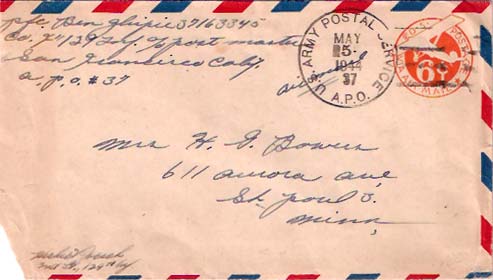 pfc. Ben 37163345
Co. "L" 129 Inf. % post master
San Francisco Calif.
a. p. o. #37
air mail
U.S. ARMY POSTAL SERVICE
MAY
5
1944
37
A.P.O.
U.S. POSTAGE
6¢
VIA AIR MAIL
Mrs H. G. Bowen
611 aurora ave
St. paul 3.
Minn.
129th Inf